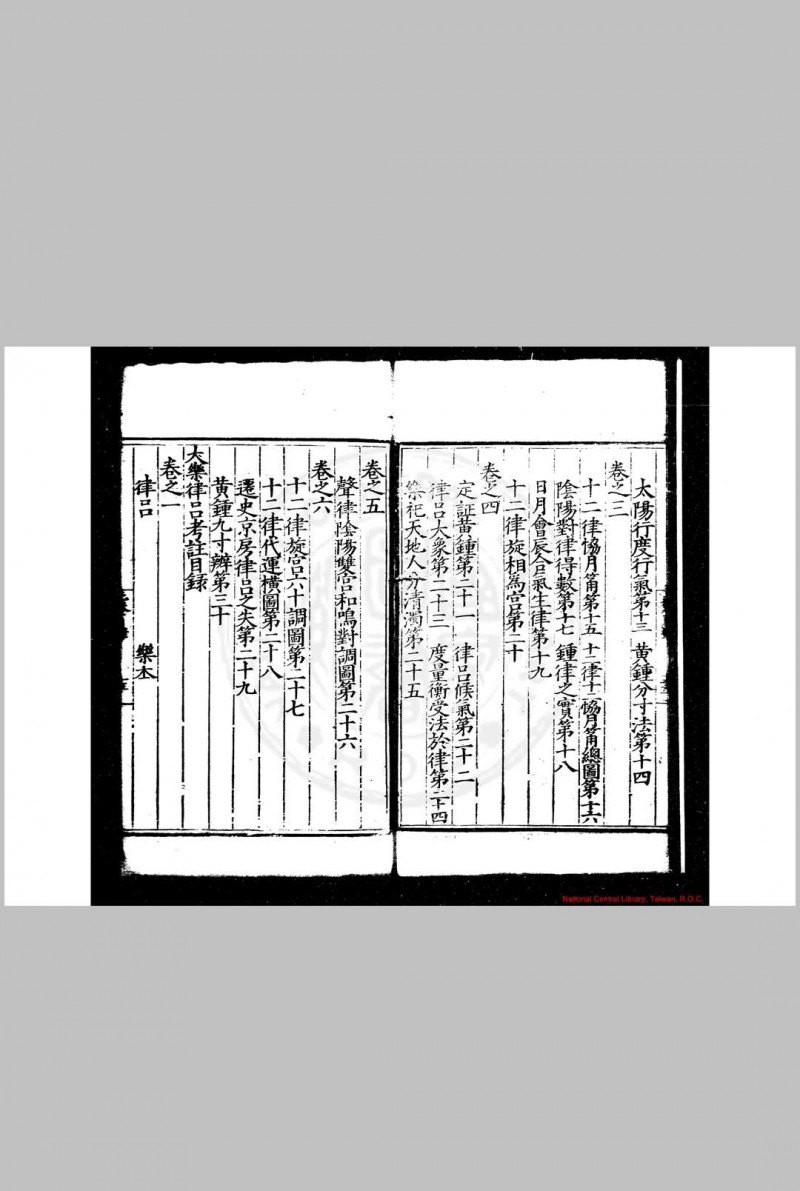 太陽行度行氣第十三　黃鍾分寸法第十四
卷之三
十二律協月筩第十五　十二律十二協月筩總圖第十六
陰陽對律得數第十七　鍾律之實第十八
日月會辰合氣生律第十九
十二律旋相為宮第二十
卷之四
定証黃鍾第二十一　律呂候氣第二十二
律呂大衆第二十三　度量衡受法於律第二十四
樂祀天地人分清濁第二十五
卷之五
聲律陰陽雙宮和鳴對調圖第二十六
卷之六
十二律旋宮六十調圖第二十七
十二律代運橫圖第二十八
遷史京房律呂之失第二十九
黃鍾九寸辨第三十
大樂律呂考註目録
卷之一
律呂　樂本
National Central Library, Taiwan, R.O.C.